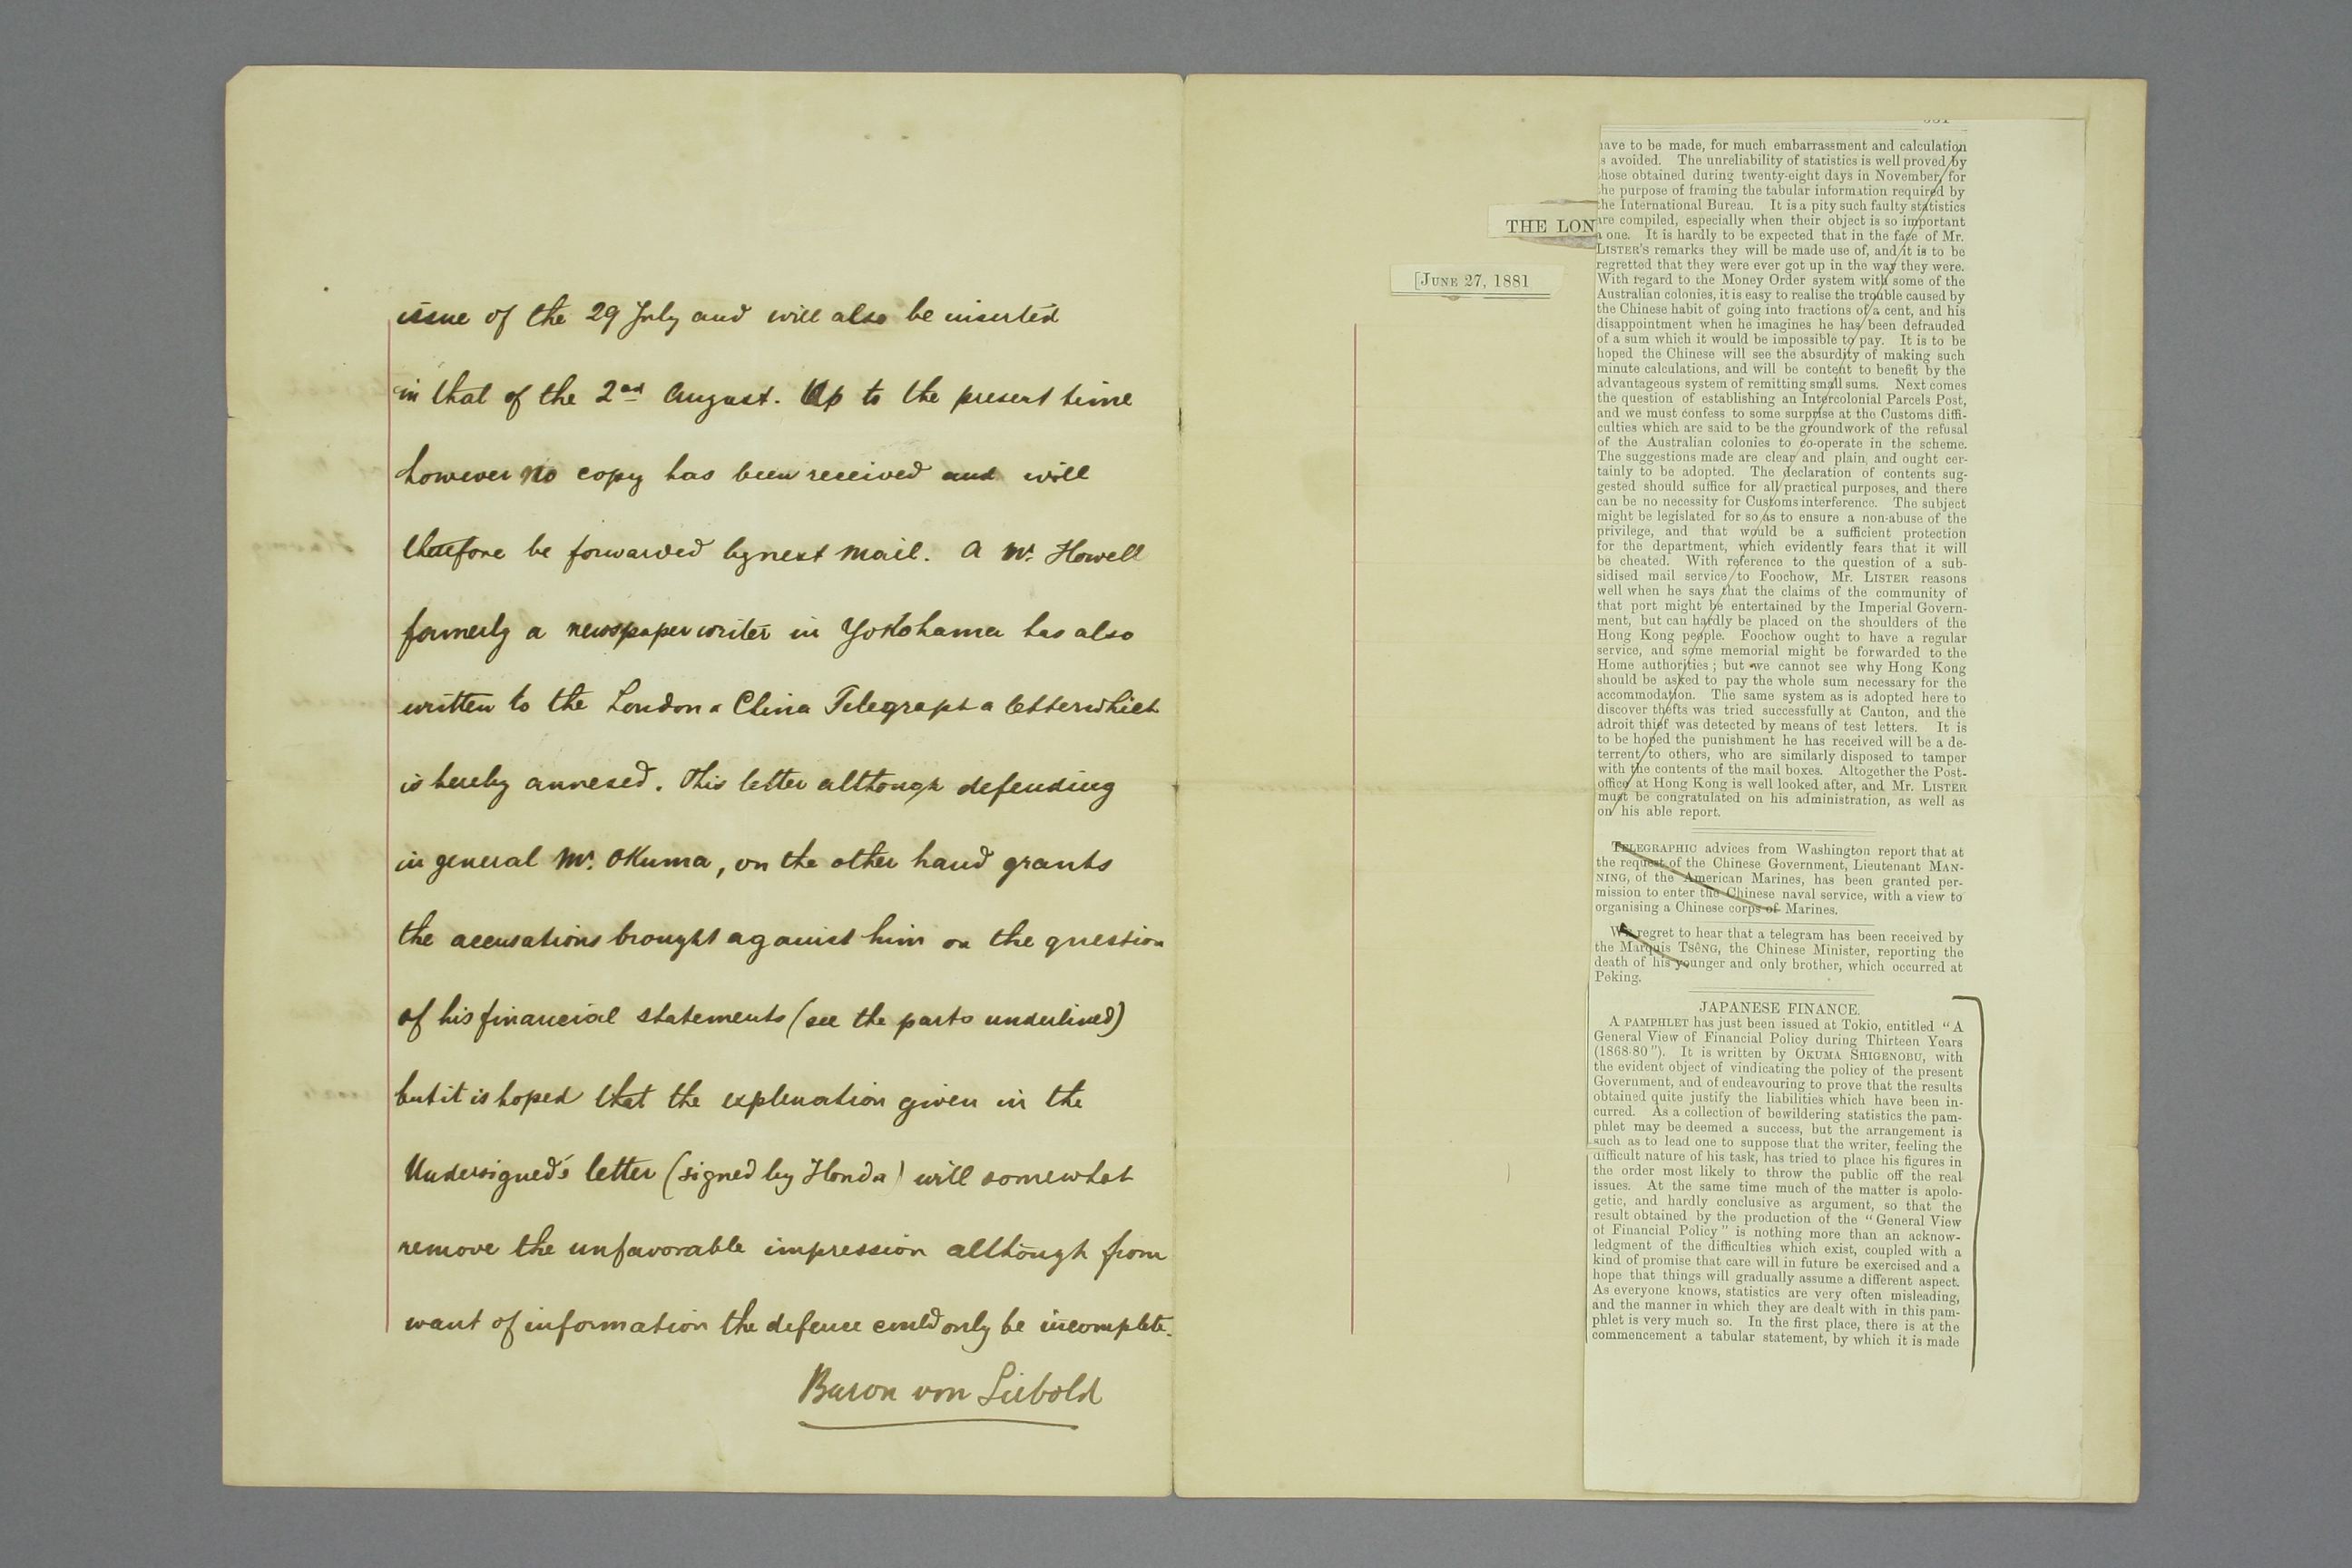 issue of the 29 July and will also be inserted
in that of the 2nd August. Up to the present time
however no copy has been received and will
therefore be forwarded by next mail. A Mr. Howell
formerly a newspaper writer in Yokohama has also
written to the London & China Telegraph a letter which
is hereby annexed. This letter although defending
in general Mr. Okuma, on the other hand grants
the accusations brought against him on the question
of his financial statements (see the parts underlined)
but it is hoped that the explanation given in the
Undersigned's letter (signed by Honda) will somewhat
remove the unfavorable impression although from
want of information the defence could only be incomplete.
Baron von Siebold
THE LON
[JUNE 27, 1881
have to be made, for much embarrassment and calculation
s avoided. The unreliability of statistics is well proved by
those obtained during twenty-eight days in November, for
the purpose of framing the tabular information required by
the International Bureau. It is a pity such faulty statistics
are compiled, especially when their object is so important
a one. It is hardly to be expected that in the face of Mr.
LISTER'S remarks they will be made use of, and it is to be
regretted that they were ever got up in the way they were.
With regard to the Money Order system with some of the
Australian colonies, it is easy to realise the trouble caused by
the Chinese habit of going into fractions of a cent, and his
disappointment when he imagines he has been defrauded
of a sum which it would be impossible to pay. It is to be
hoped the Chinese will see the absurdity of making such
minute calculations, and will be content to benefit by the
advantageous system of remitting small sums. Next comes
the question of establishing an Intercolonial Parcels Post,
and we must confess to some surprise at the Customs diffi-
culties which are said to be the groundwork of the refusal
of the Australian colonies to co-operate in the scheme.
The suggestions made are clear and plain, and ought cer-
tainly to be adopted. The declaration of contents sug-
gested should suffice for all practical purposes, and there
can be no necessity for Customs interference. The subject
might be legislated for so as to ensure a non-abuse of the
privilege, and that would be a sufficient protection
for the department, which evidently fears that it will
be cheated. With reference to the question of a sub-
sidised mail service to Foochow, Mr. LISTER reasons
well when he says that the claims of the community of
that port might be entertained by the Imperial Govern-
ment, but can hardly be placed on the shoulders of the
Hong Kong people. Foochow ought to have a regular
service, and some memorial might be forwarded to the
Home authorities; but we cannot see why Hong Kong
should be asked to pay the whole sum necessary for the
accommodation. The same system as is adopted here to
discover thefts was tried successfully at Canton, and the
adroit thief was detected by means of test letters. It is
to be hoped the punishment he has received will be a de-
terrent to others, who are similarly disposed to tamper
with the contents of the mail boxes. Altogether the Post-
office at Hong Kong is well looked after, and Mr. LISTER
must be congratulated on his administration, as well as
on his able report.
TELEGRAPHIC advices from Washington report that at
the request of the Chinese Government, Lieutenant MAN-
NING, of the American Marines, has been granted per-
mission to enter the Chinese naval service, with a view to
organising a Chinese corps of Marines.
WE regret to hear that a telegram has been received by
the Marquis TSÊNG, the Chinese Minister, reporting the
death of his younger and only brother, which occurred at
Peking.
JAPANESE FINANCE.
A PAMPHLET has just been issued at Tokio, entitled "A
General View of Financial Policy during Thirteen Years
(1868-80"). It is written by OKUMA SHIGENOBU, with
the evident object of vindicating the policy of the present
Government, and of endeavouring to prove that the results
obtained quite justify the liabilities which have been in-
curred. As a collection of bewildering statistics the pam-
phlet may be deemed a success, but the arrangement is
such as to lead one to suppose that the writer, feeling the
difficult nature of his task, has tried to place his figures in
the order most likely to throw the public off the real
issues. At the same time much of the matter is apolo-
getic, and hardly conclusive as argument, so that the
result obtained by the production of the "General View
of Financial Policy" is nothing more than an acknow-
ledgment of the difficulties which exist, coupled with a
kind of promise that care will in future be exercised and a
hope that things will gradually assume a different aspect.
As everyone knows, statistics are very often misleading,
and the manner in which they are dealt with in this pam-
phlet is very much so. In the first place, there is at the
commencement a tabular statement, by which it is made